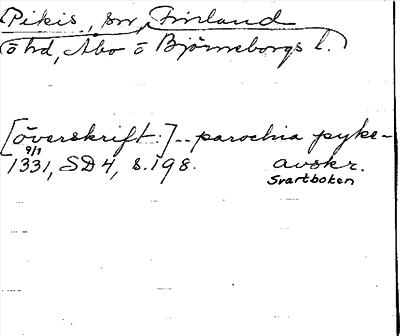 Pikis, sn, Finland
ö hd, Åbo o Björneborgs l.
[överskrift:] -- parochia pyke-
9/1
1331, SD 4, s. 198. avskr.
Svartboken